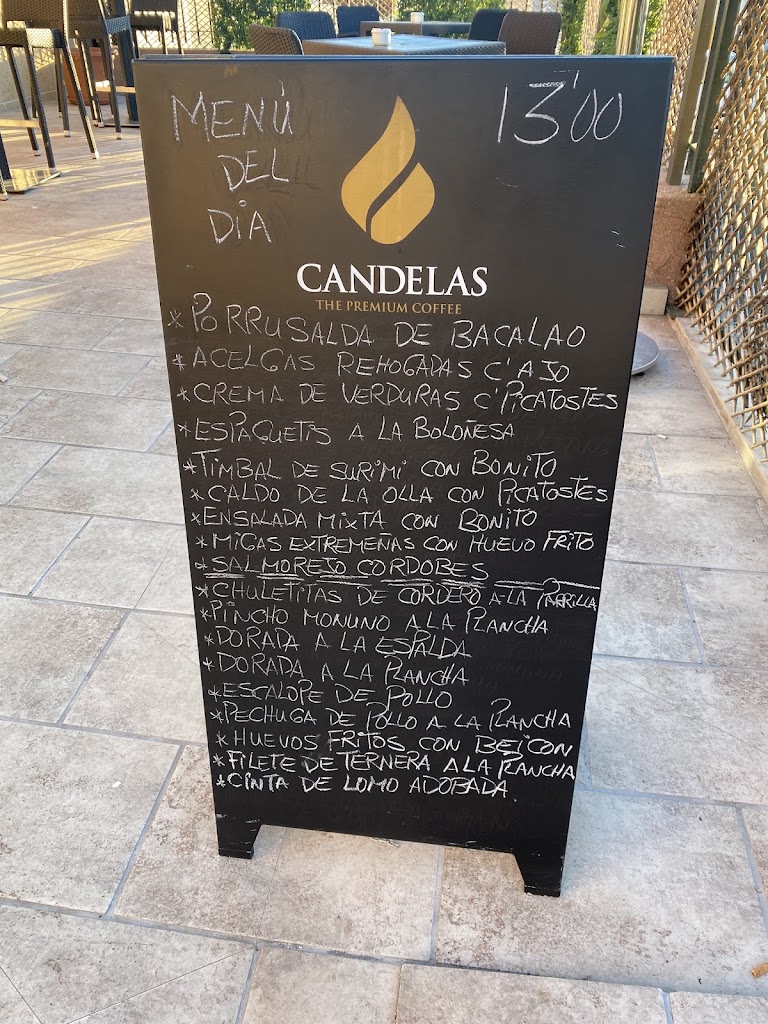 MENÚ
DEL
DÍA
13'00
CANDELAS
THE PREMIUM COFFEE
*PORRUSALDA DE BACALAO
*ACELGAS REHOGADAS C'AJO
*CREMA DE VERDURAS C'PICATOSTES
*ESPAGUETIS A LA BOLOÑESA
*TIMBAL DE SURIMI CON BONITO
*CALDO DE LA OLLA CON PICATOSTES
*ENSALADA MIXTA CON BONITO
*MIGAS EXTREMEÑAS CON HUEVO FRITO
*SALMOREJO CORDOBES
*CHULETITAS DE CORDERO A LA PARRILLA
*PINCHO MORUNO A LA PLANCHA
*DORADA A LA ESPALDA
*DORADA A LA PLANCHA
*ESCALOPE DE POLLO
*PECHUGA DE POLLO A LA PLANCHA
*HUEVOS FRITOS CON BEICON
*FILETE DE TERNERA A LA PLANCHA
*CINTA DE LOMO ADOBADA